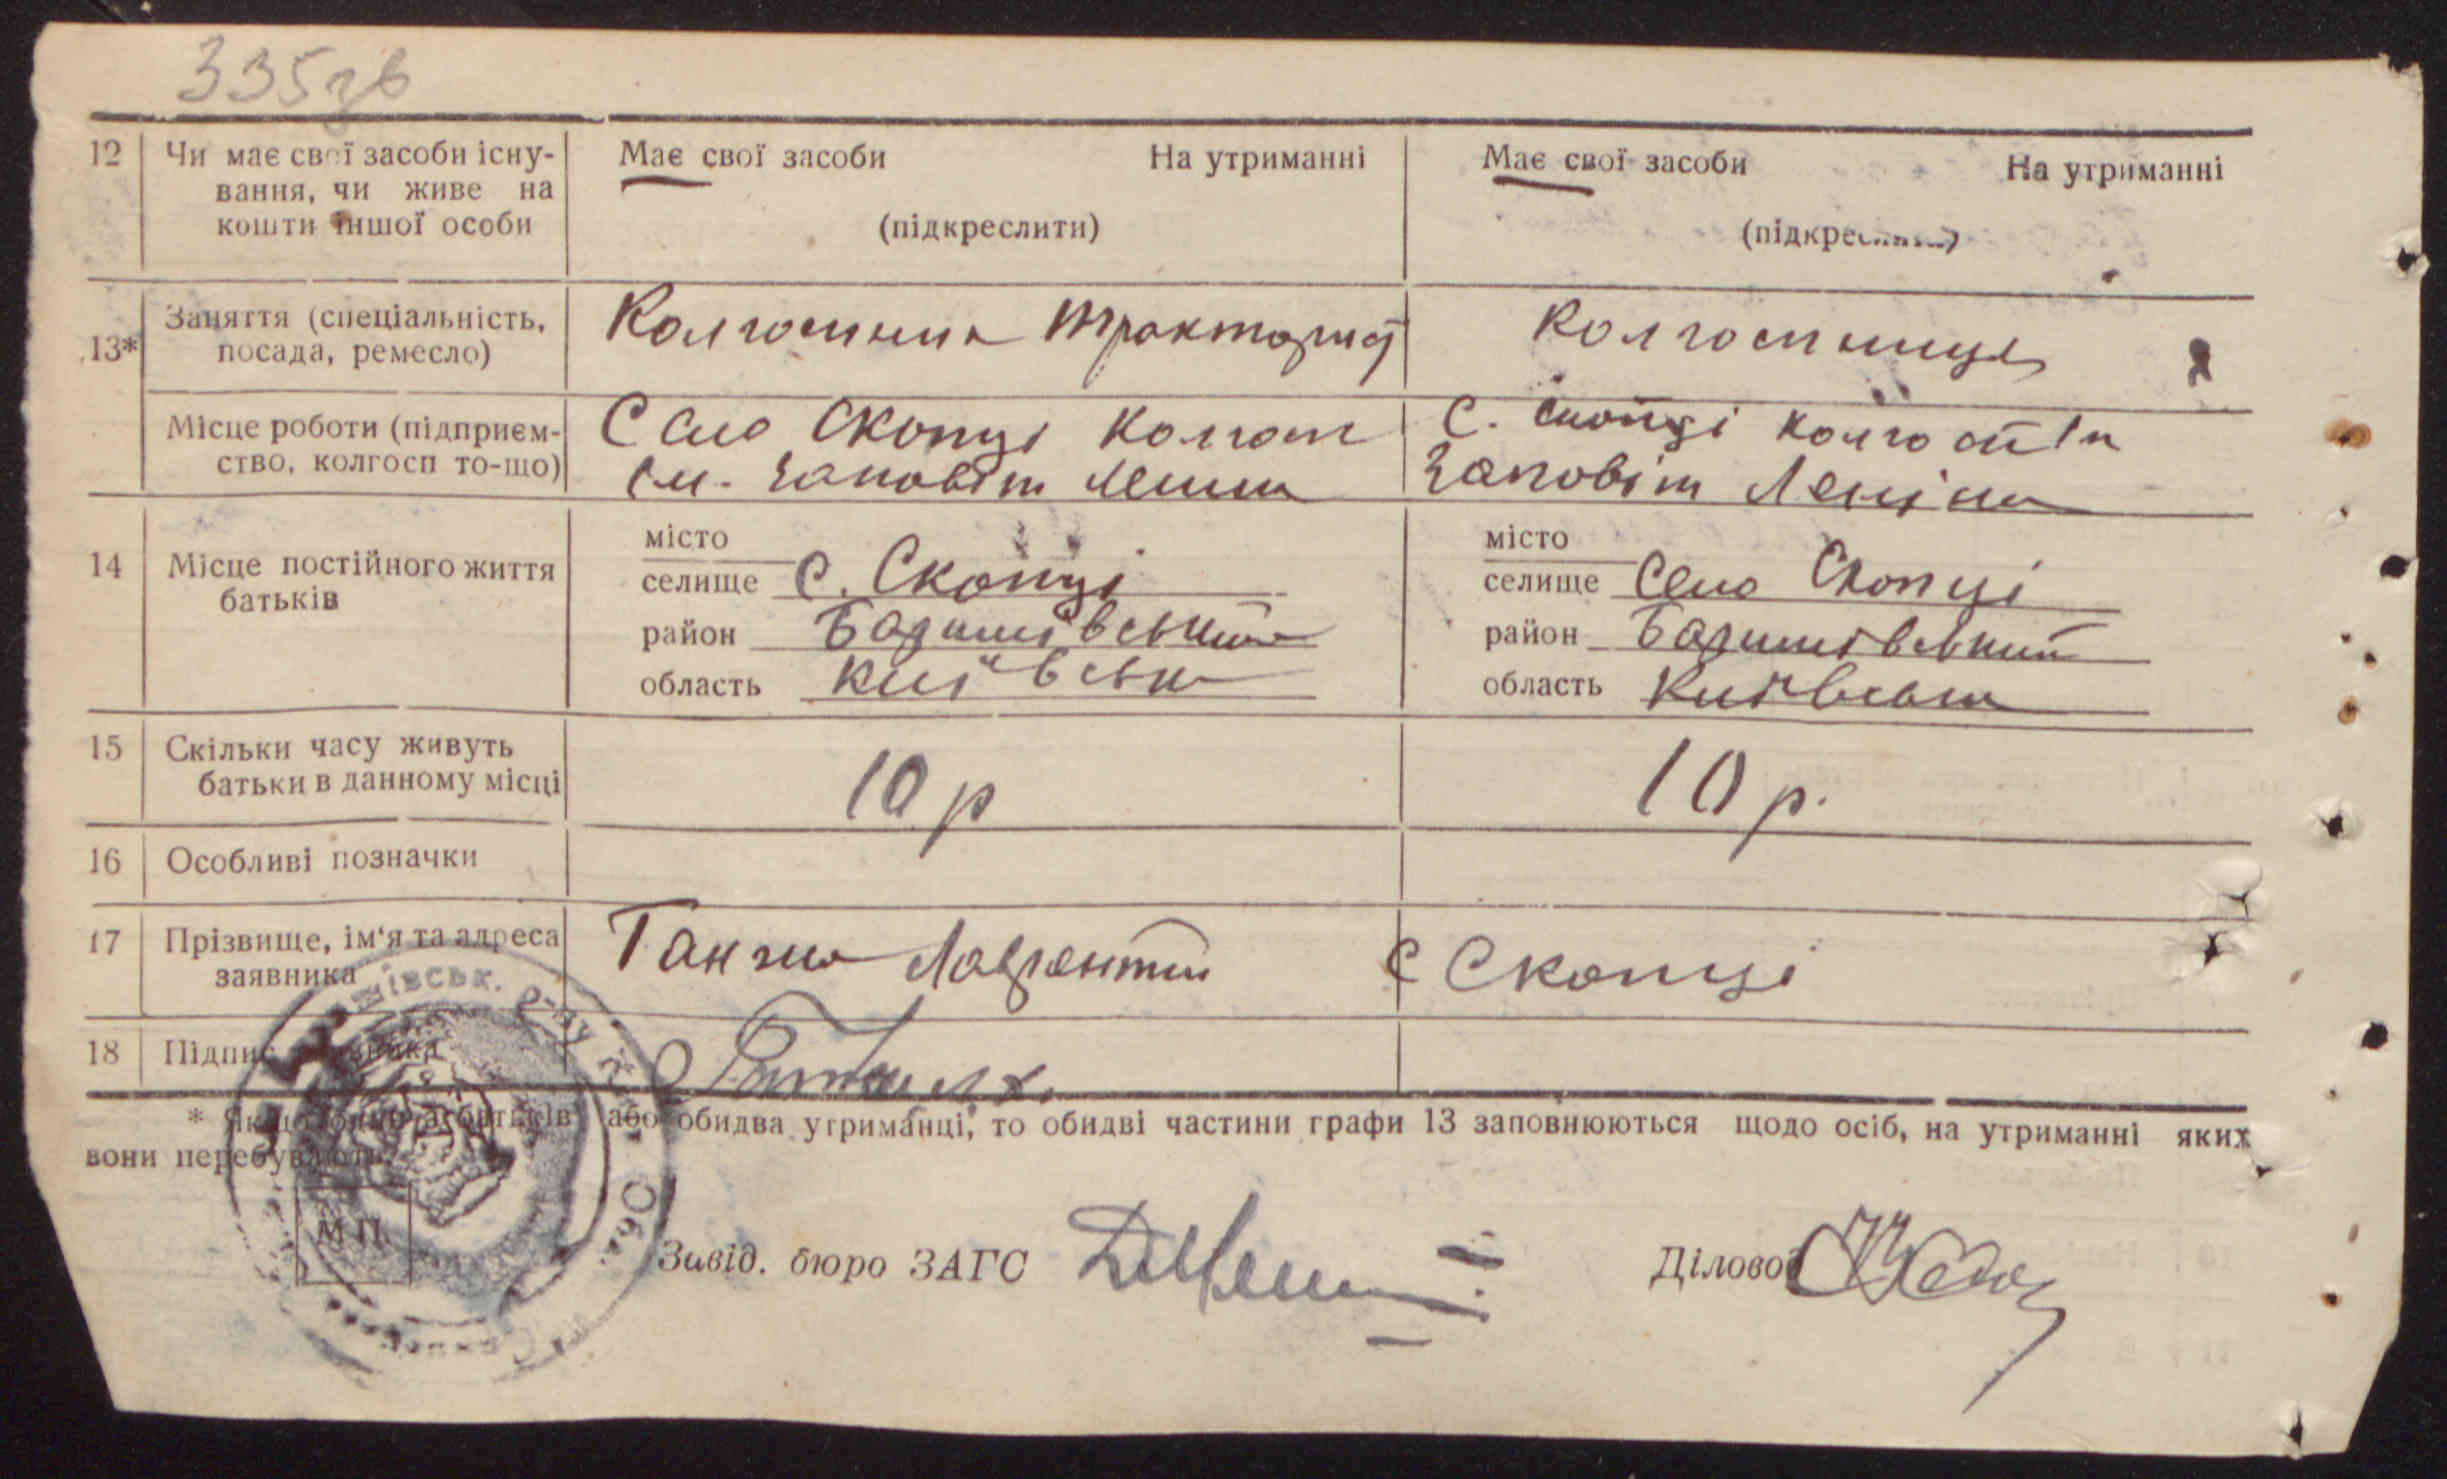 335зв
12 Чи має свої засоби існу-
вання, чи живе на
кошти іншої особи
Має свої засоби На утриманні
(підкреслити)
Має свої засоби На утриманні
(підкреслити)
13* Заняття (спеціальність,
посада, ремесло)
Колгоспник тракторист
Колгоспниця
Місце роботи (підприєм-
ство, колгосп то-що)
Село Скопці Колгосп
ім. Заповіт Леніна
С. Скопці Колгосп ім
Заповіт Леніна
14 Місце постійного життя
батьків
місто
селище с. Скопці
район Баришівський
область Київськ
місто
селище Село Скопці
район Баришівський
область Київська
15 Скільки часу живуть
батьки в данному місці
10 р
10 р.
16 Особливі позначки
17 Прізвище, ім'я та адреса
заявника
Лаврентий с Скопці
18 Підпис заявника
* Якщо один з батьків або обидва утриманці, то обидві частини графи 13 заповнюються щодо осіб, на утриманні яких
вони перебувають.
М.П.
Завід. бюро ЗАГС
Ділово
івськ. р-ну
Обл.